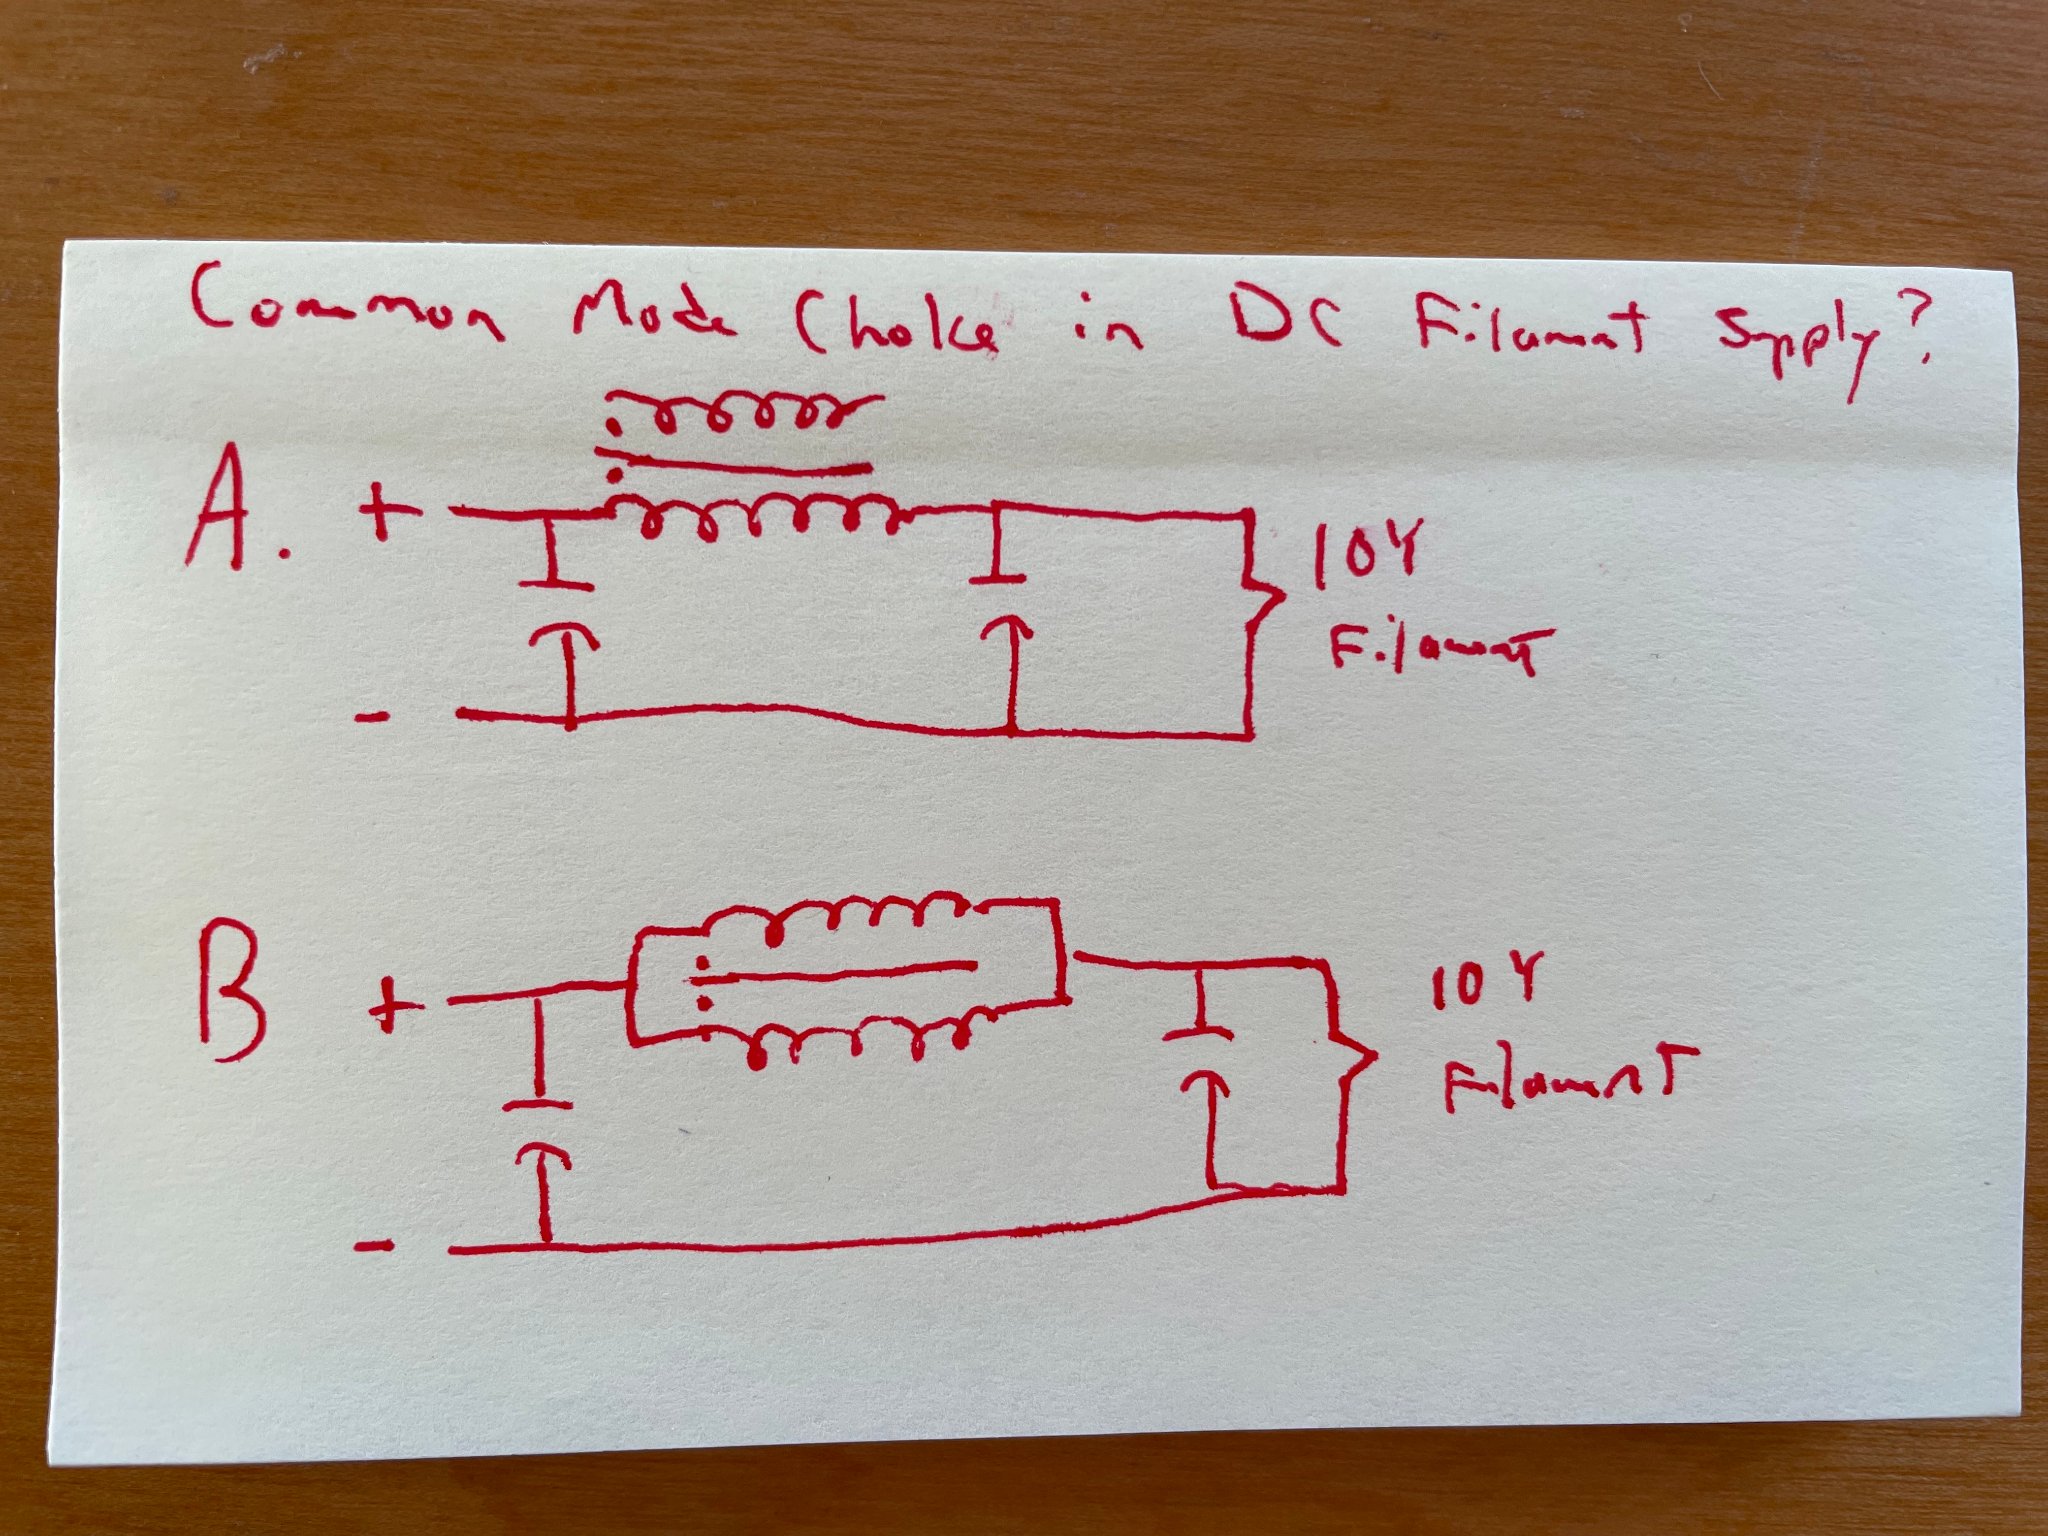 Common Mode Choke in DC Filament Supply?
A. +
10Y
Filament
-
B +
10Y
Filament
-